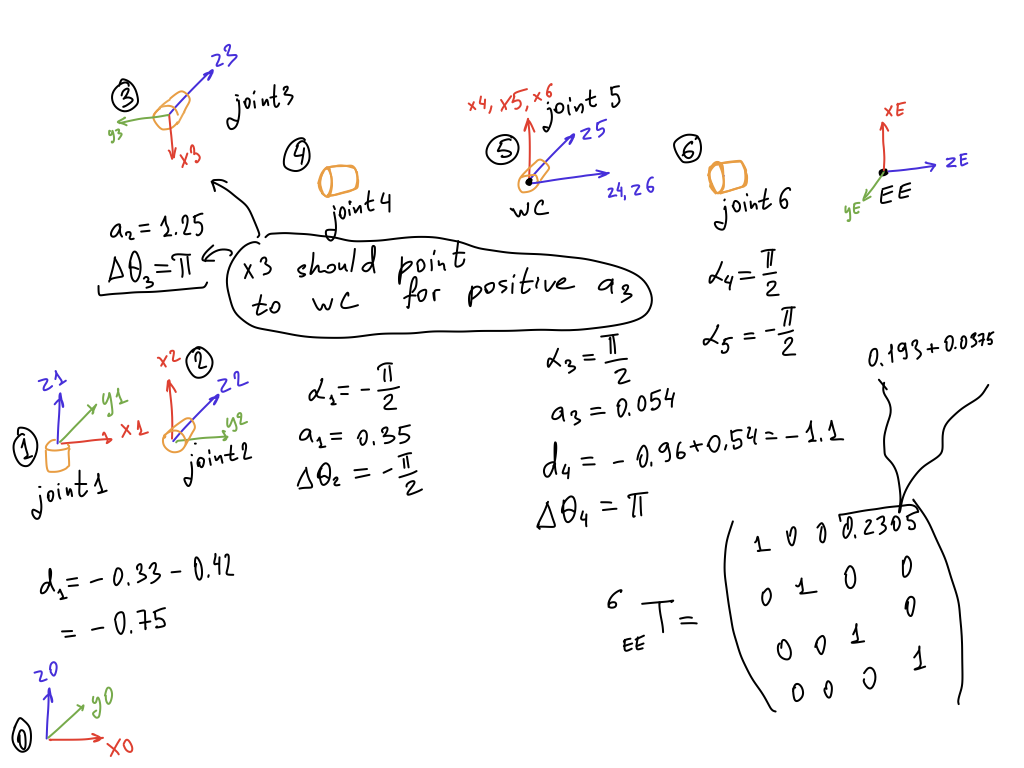 z3
3
joint3
y3
x3
4
joint4
x4, x5, x6
joint 5
5
z5
z4, z6
WC
6
joint 6
xE
zE
yE
EE
a₂ = 1.25
Δθ₃ = π
x3 should point
to WC for positive a₃
α₄ = π/2
α₅ = -π/2
0.193 + 0.0375
z1
y1
x1
1
joint1
x2
2
z2
y2
joint2
α₁ = -π/2
a₁ = 0.35
Δθ₂ = -π/2
α₃ = π/2
a₃ = 0.054
d₄ = -0.96+0.54 = -1.1
Δθ₄ = π
d₁ = -0.33 - 0.42
= -0.75
6
EE T =
1 0 0 0.2305
0 1 0 0
0 0 1 0
0 0 0 1
z0
y0
x0
0